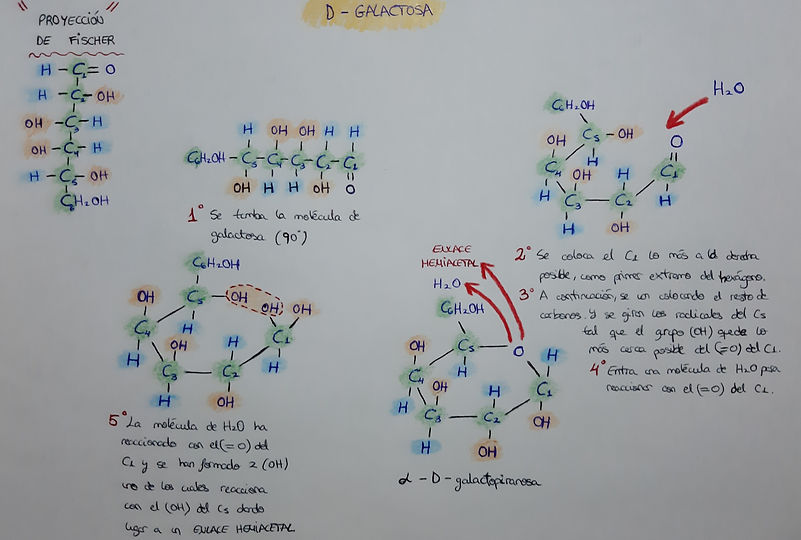 D - GALACTOSA
" PROYECCIÓN "
DE FISCHER
H - C₁ = O
H - C₂ - OH
OH - C₃ - H
OH - C₄ - H
H - C₅ - OH
C₆H₂OH
H OH OH H H
C₆H₂OH - C₅ - C₄ - C₃ - C₂ - C₁
OH H H OH O
1º Se tumba la molécula de
galactosa (90°)
H₂O
C₆H₂OH
OH C₅ - OH O
C₄ OH H H C₁
H C₃ C₂ H
H OH
2º Se coloca el C₁ lo más a la derecha
posible, como primer extremo del hexágono.
3º A continuación, se van colocando el resto de
carbonos. Y se giran los radicales del C₅
tal que el grupo (OH) quede lo
más cerca posible del (=O) del C₁.
4º Entra una molécula de H₂O para
reaccionar con el (=O) del C₁.
C₆H₂OH
OH C₅ - OH OH OH
C₄ H OH H C₁
H C₃ C₂ H
H OH
5º La molécula de H₂O ha
reaccionado con el (=O) del
C₁ y se han formado 2 (OH)
uno de los cuales reacciona
con el (OH) del C₅ dando
lugar a un ENLACE HEMIACETAL
ENLACE
HEMIACETAL
H₂O
C₆H₂OH
OH C₅ O H
C₄ OH H H C₁
H C₃ C₂ OH
H OH
α - D - galactopiranosa